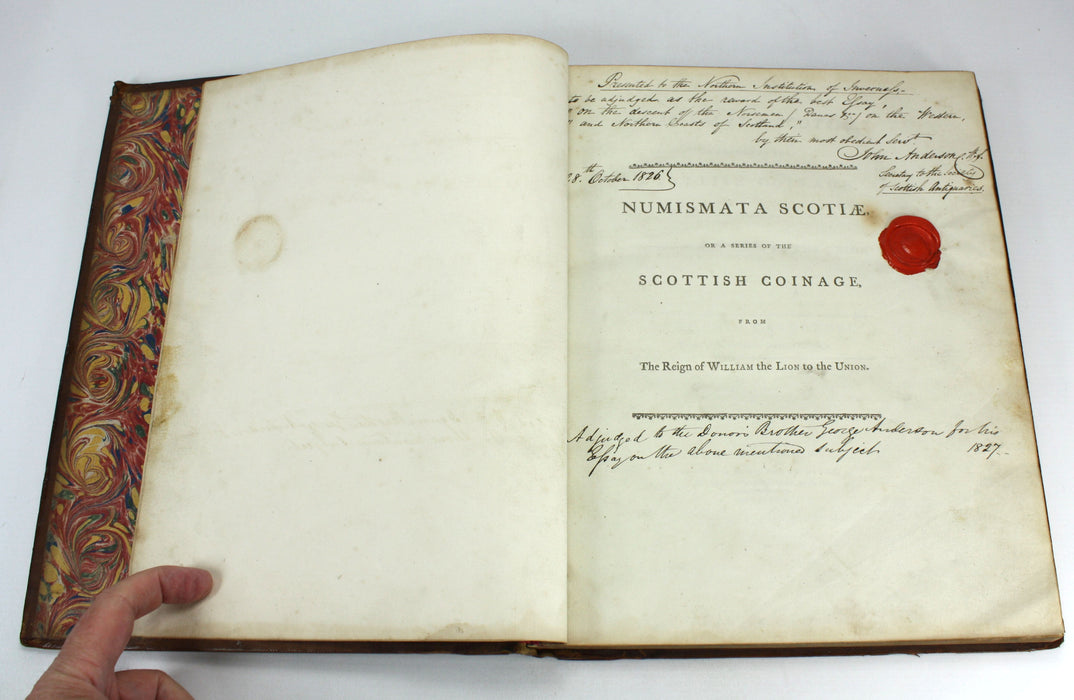 Presented to the Northern Institution of Inverness,
to be adjudged as the reward of the best Essay,
"on the descent of the Norsemen / Danes &c / on the Western,
" and Northern Coasts of Scotland,"
by their most obedient Servt
John Anderson, W.S.
Secretary to the Society
of Scottish Antiquaries.
28th October 1826
NUMISMATA SCOTIÆ,
OR A SERIES OF THE
SCOTTISH COINAGE,
FROM
The Reign of WILLIAM the LION to the UNION.
Adjudged to the Donor's Brother George Anderson for his
Essay on the above mentioned Subject 1827.